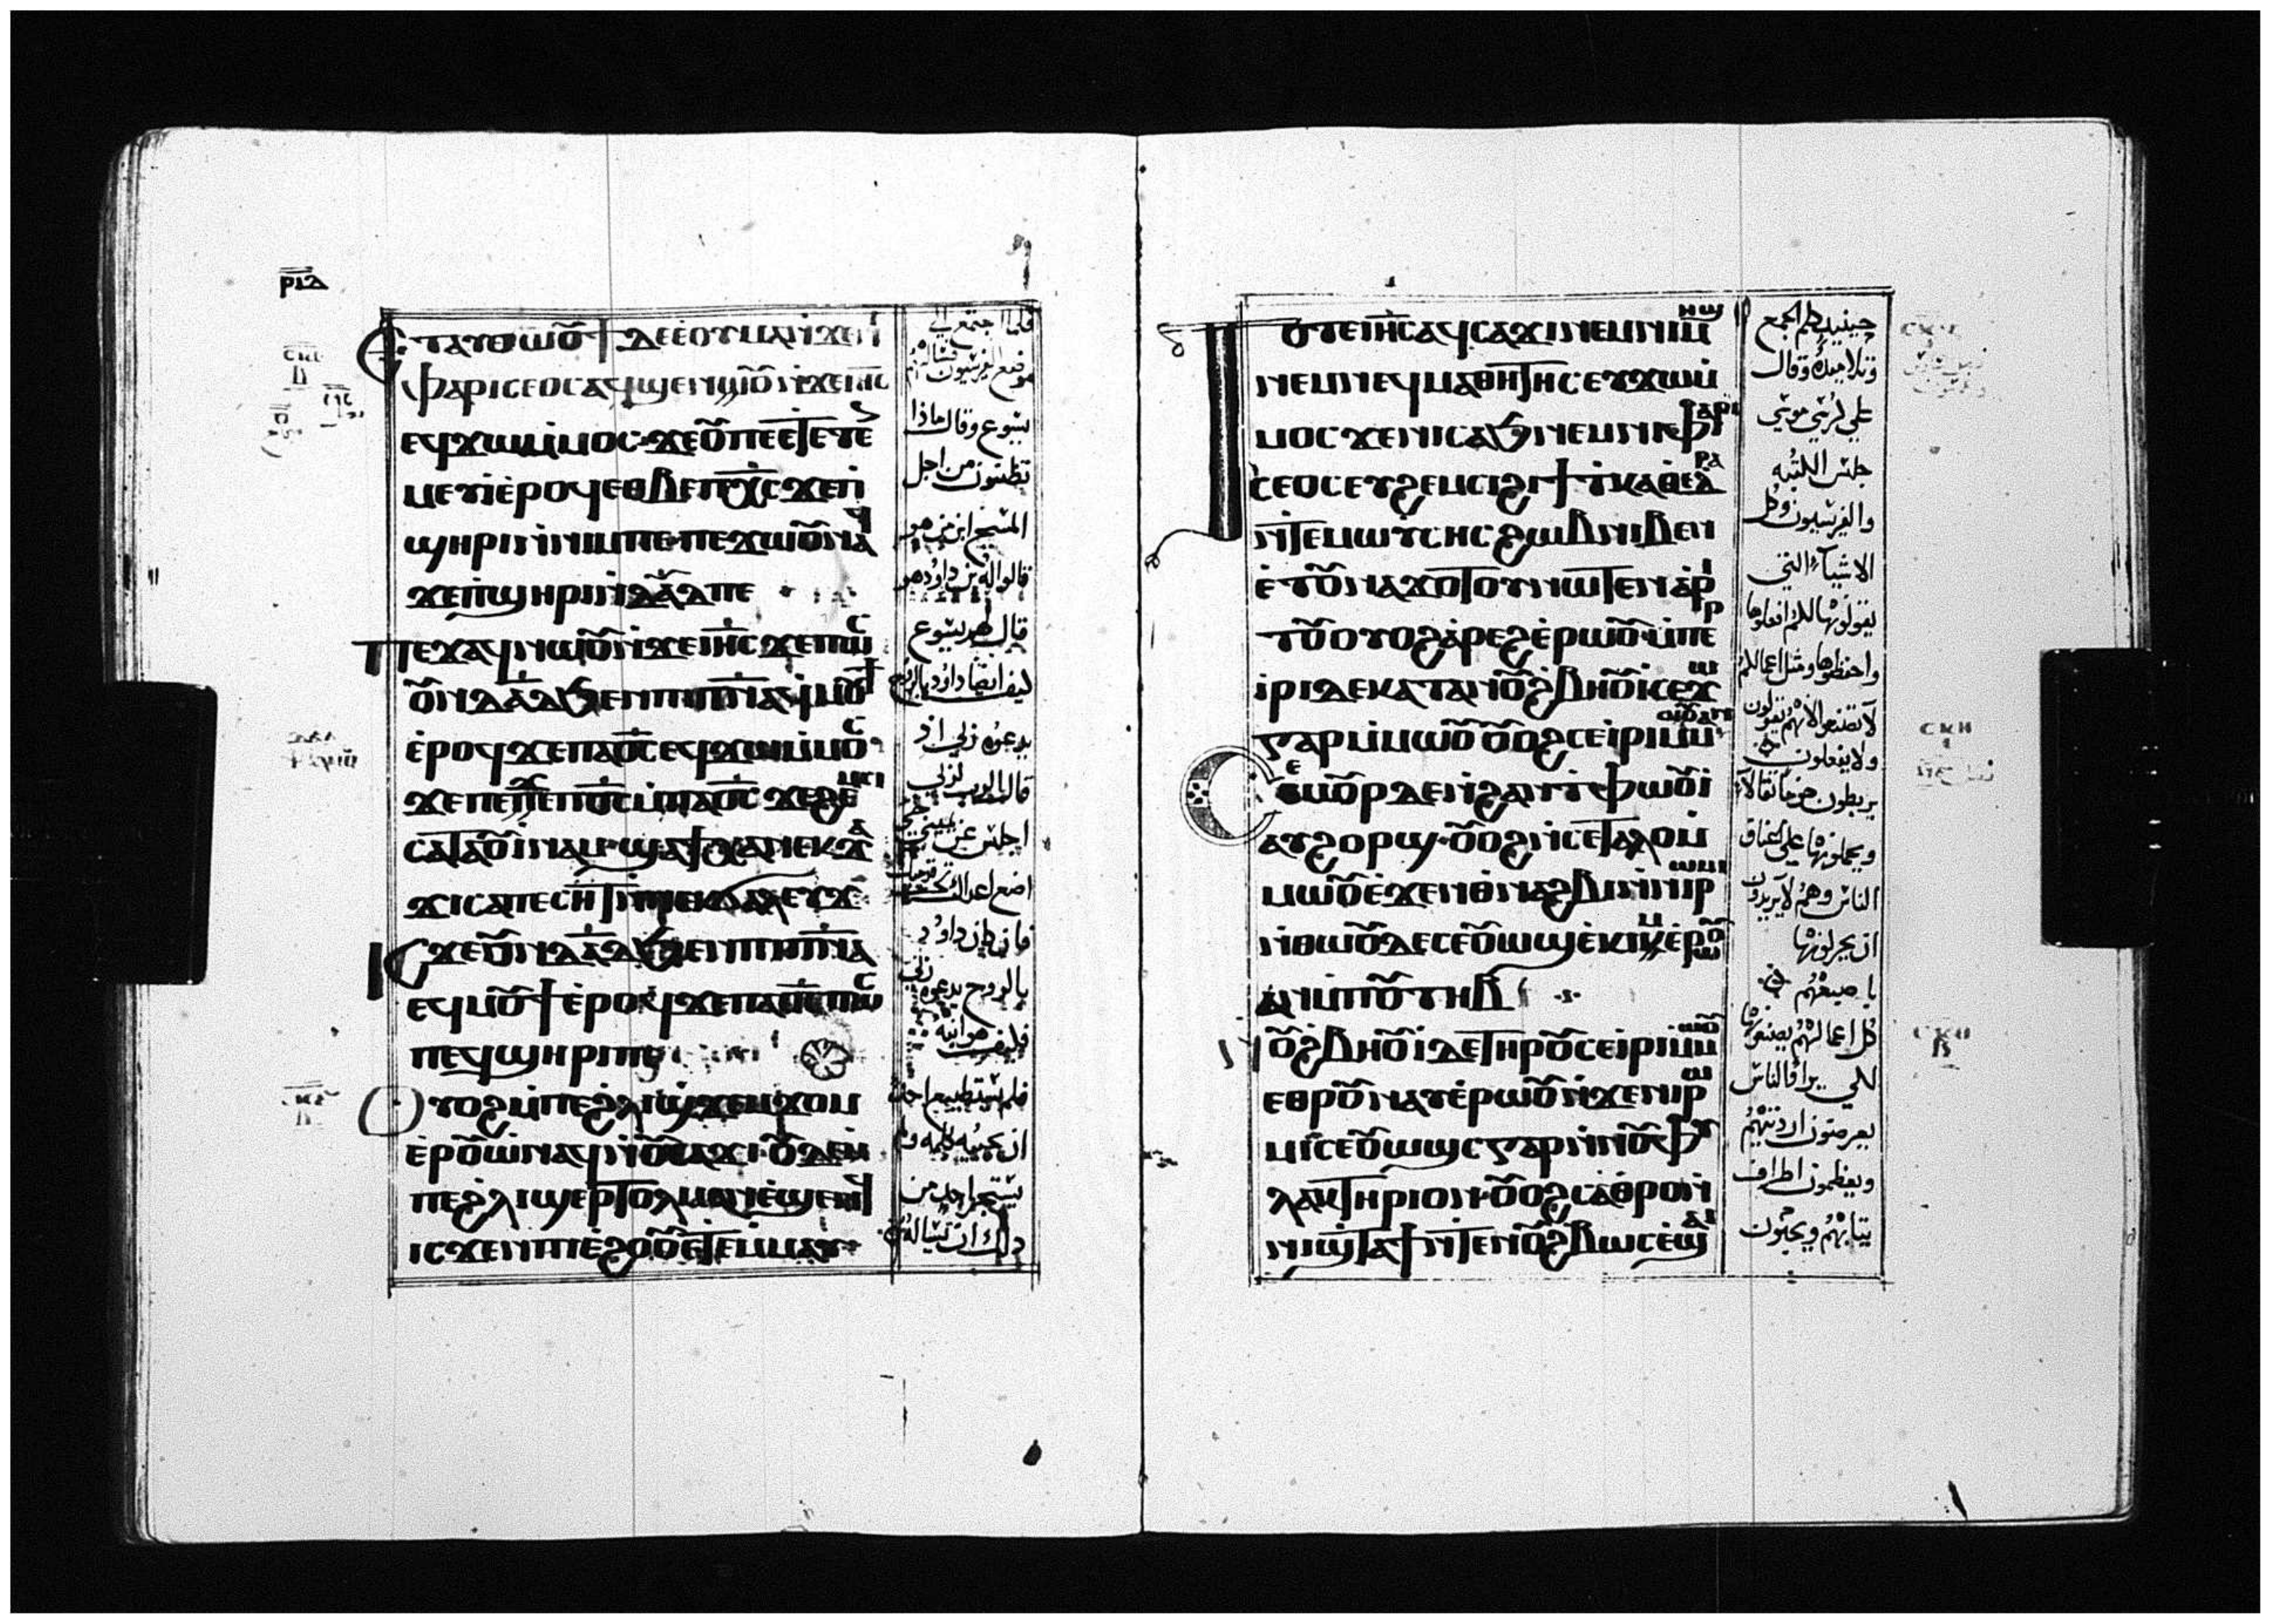 ⲣⲓⲇ
Ⲉⲧⲁⲩⲑⲱⲟⲩϯ ⲇⲉ ⲉⲟⲩⲙⲁ ⲛϫⲉⲛⲓ
ⲫⲁⲣⲓⲥⲉⲟⲥ ⲁϥϣⲉⲛⲱⲟⲩ ⲛϫⲉⲓⲏⲥ
ⲉϥϫⲱ ⲙⲙⲟⲥ ϫⲉ ⲟⲩ ⲡⲉⲧⲉⲧⲉⲛ
ⲙⲉⲩⲓ ⲉⲣⲟϥ ⲉⲑⲃⲉ ⲡⲭⲥ ϫⲉ ⲡ
ϣⲏⲣⲓ ⲛⲛⲓⲙ ⲡⲉ ⲡⲉϫⲱⲟⲩ ⲛⲁϥ
ϫⲉ ⲡϣⲏⲣⲓ ⲛⲇⲁⲇ ⲡⲉ
Ⲡⲉϫⲁϥ ⲛⲱⲟⲩ ⲛϫⲉⲓⲏⲥ ϫⲉ ⲡⲱⲥ
ⲟⲩⲛ ⲇⲁⲇ ϧⲉⲛ ⲡⲓⲡⲛⲁ ϥⲙⲟⲩϯ
ⲉⲣⲟϥ ϫⲉ ⲡⲁⲟⲥ ⲉϥϫⲱ ⲙⲙⲟⲥ
ϫⲉ ⲡⲉϫⲉ ⲡⲟⲥ ⲙⲡⲁⲟⲥ ϫⲉ ϩⲉⲙⲥⲓ
ⲥⲁⲧⲁⲟⲩⲓⲛⲁⲙ ϣⲁϯⲭⲁ ⲛⲉⲕϫⲁ
ϫⲓ ⲥⲁⲡⲉⲥⲏⲧ ⲛⲛⲉⲕϭⲁⲗⲁⲩϫ
Ⲓⲥϫⲉ ⲟⲩⲛ ⲇⲁⲇ ϧⲉⲛ ⲡⲓⲡⲛⲁ
ⲉϥⲙⲟⲩϯ ⲉⲣⲟϥ ϫⲉ ⲡⲁⲟⲥ ⲡⲱⲥ
ⲡⲉϥϣⲏⲣⲓ ⲡⲉ
Ⲟⲩⲟϩ ⲙⲡⲉ ϩⲗⲓ ϣϫⲉⲙϫⲟⲙ
ⲉⲣⲟⲩⲱ ⲛⲁϥ ⲛⲟⲩⲥⲁϫⲓ ⲟⲩⲇⲉ ⲙ
ⲡⲉ ϩⲗⲓ ⲉⲣⲧⲟⲗⲙⲁⲛ ⲉϣⲉⲛϥ
ⲓⲥϫⲉⲛ ⲡⲓⲉϩⲟⲟⲩ ⲉⲧⲉⲙⲙⲁⲩ
فلما اجتمع الي
موضع الفريسيون فسالهم
يسوع وقال ماذا
تظنون من اجل
المسيح ابن من هو
قالوا له بن داوود هو
قال لهم يسوع
كيف ايضا داوود بالروح
يدعوه ربي اذ
قال الرب لربي
اجلس عن يميني حتي
اضع اعداك تحت قدميك
فان كان داوود
بالروح يدعوه ربي
فكيف هو ابنه
فلم يستطيع احد
ان يجيبه بكلمه ولم
يستجر احد من
ذلك ان يساله
Ⲧⲟⲧⲉ ⲓⲏⲥ ⲁϥⲥⲁϫⲓ ⲛⲉⲙ ⲛⲓⲙⲏϣ
ⲛⲉⲙ ⲛⲉϥⲙⲁⲑⲏⲧⲏⲥ ⲉϥϫⲱ ⲙ
ⲙⲟⲥ ϫⲉ ⲛⲓⲥⲁϧ ⲛⲉⲙ ⲛⲓⲫⲁⲣⲓ
ⲥⲉⲟⲥ ⲉⲩϩⲉⲙⲥⲓ ϩⲓ ϯⲕⲁⲑⲉⲇⲣⲁ
ⲛⲧⲉ ⲙⲱⲩⲥⲏⲥ ϩⲱⲃ ⲛⲓⲃⲉⲛ
ⲉⲧⲟⲩⲛⲁϫⲟⲧⲟⲩ ⲛⲱⲧⲉⲛ ⲁⲣⲓ
ⲧⲟⲩ ⲟⲩⲟϩ ⲁⲣⲉϩ ⲉⲣⲱⲟⲩ ⲙⲡⲉⲣ
ⲓⲣⲓ ⲇⲉ ⲕⲁⲧⲁ ⲛⲟⲩϩⲃⲏⲟⲩⲓ ⲥⲉϫⲱ
ⲅⲁⲣ ⲙⲙⲱⲟⲩ ⲟⲩⲟϩ ⲥⲉⲓⲣⲓ ⲙⲙⲱⲟⲩ ⲁⲛ
Ⲥⲉⲙⲟⲩⲣ ⲇⲉ ⲛϩⲁⲛⲉⲧⲫⲱⲟⲩⲓ
ⲁⲩϩⲟⲣϣ ⲟⲩⲟϩ ⲛⲥⲉⲧⲁⲗⲟ ⲙ
ⲙⲱⲟⲩ ⲉϫⲉⲛ ⲑⲛⲁϩⲃⲓ ⲛⲛⲓⲣⲱⲙⲓ
ⲛⲑⲱⲟⲩ ⲇⲉ ⲥⲉⲟⲩⲱϣ ⲉⲕⲓⲙ ⲉⲣⲱⲟⲩ
ⲁⲛ ⲙⲡⲟⲩⲧⲏⲃ
Ⲛⲟⲩϩⲃⲏⲟⲩⲓ ⲇⲉ ⲧⲏⲣⲟⲩ ⲥⲉⲓⲣⲓ ⲙⲙⲱⲟⲩ
ⲉⲑⲣⲟⲩⲛⲁⲩ ⲉⲣⲱⲟⲩ ⲛϫⲉ ⲛⲓⲣⲱ
ⲙⲓ ⲥⲉⲟⲩⲱϣⲥ ⲅⲁⲣ ⲛⲛⲟⲩⲫⲩ
ⲗⲁⲕⲧⲏⲣⲓⲟⲛ ⲟⲩⲟϩ ⲥⲁⲑⲣⲟⲩ
ⲛⲓϣⲧⲁϯ ⲛⲧⲉ ⲛⲟⲩϩⲃⲱⲥ ⲉϣⲁⲓ
حينيد كلم الجمع
وتلاميده وقال
علي كرسي موسي
جلس الكتبه
والفريسيون وكل
الاشياء التي
يقولونها لكم افعلوها
واحفظوها ومثل اعمالهم
لا تصنعوا لانهم يقولون
ولا يفعلون
يربطون حزما ثقالا
ويحملونها علي اعناق
الناس وهم لا يريدون
ان يحركونها
با صبعهم
كل اعمالهم يصنعونها
لكي يراها الناس
يعرضون ارديتهم
ويعظمون اطراف
ثيابهم ويحبون
ⲥⲕⲏ
ⲥⲕⲑ